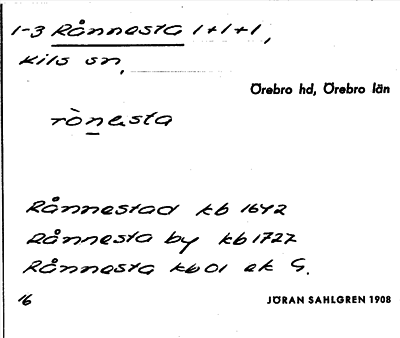 1-3 Rånnesta 1+1+1,
Kils sn,
Örebro hd, Örebro län
rònesta
Rånnestad kb 1642
Rånnesta by kb 1727
Rånnesta kb 01 ek G.
16
JÖRAN SAHLGREN 1908